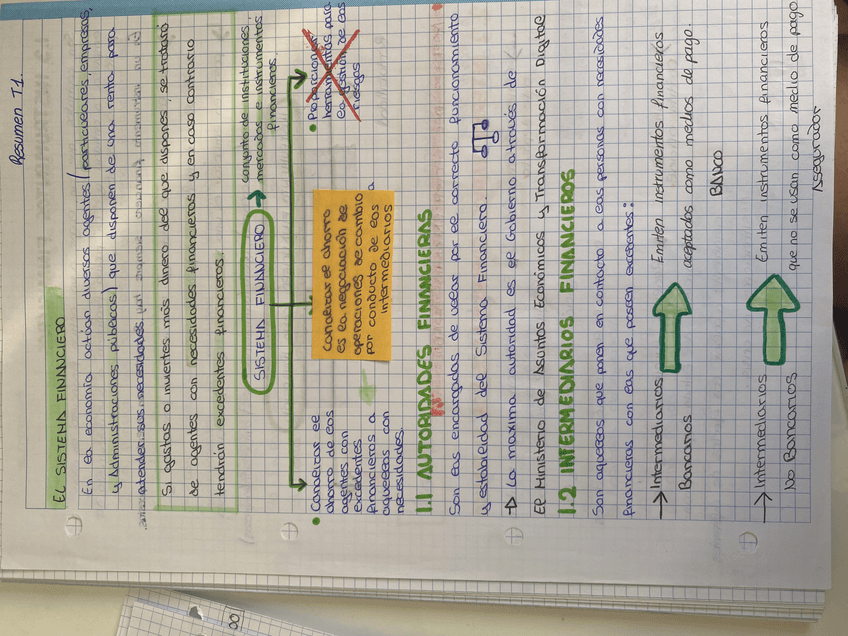 Resumen T1.
EL SISTEMA FINANCIERO
En la economía actúan diversos agentes (particulares, empresas,
y Administraciones públicas) que disponen de una renta para
atender sus necesidades
Si gastas o inviertes más dinero del que dispones, se tratará
de agentes con necesidades financieras y en caso contrario
tendrán excedentes financieros.
SISTEMA FINANCIERO → conjunto de instituciones,
mercados e instrumentos
financieros.
• Canalizar el
ahorro de los
agentes con
excedentes
financieros a
aquellos con
necesidades.
Canalizar el ahorro
es la negociación de
operaciones de cambio
por conducto de los
intermediarios
a
• Proporcionan
herramientas para
la gestión de los
riesgos
1.1 AUTORIDADES FINANCIERAS
Son las encargadas de velar por el correcto funcionamiento
y estabilidad del Sistema Financiero.
→ La maxima autoridad es el Gobierno através de
El Ministerio de Asuntos Económicos y Transformación Digital
1.2 INTERMEDIARIOS FINANCIEROS
Son aquellos que ponen en contacto a las personas con necesidades
financieras con las que poseen excedentes:
→ Intermediarios
Bancarios
Emiten instrumentos financieros
aceptados como medios de pago.
BANCO
→ Intermediarios
No Bancarios
Emiten instrumentos financieros
que no se usan como medio de pago
Asegurador